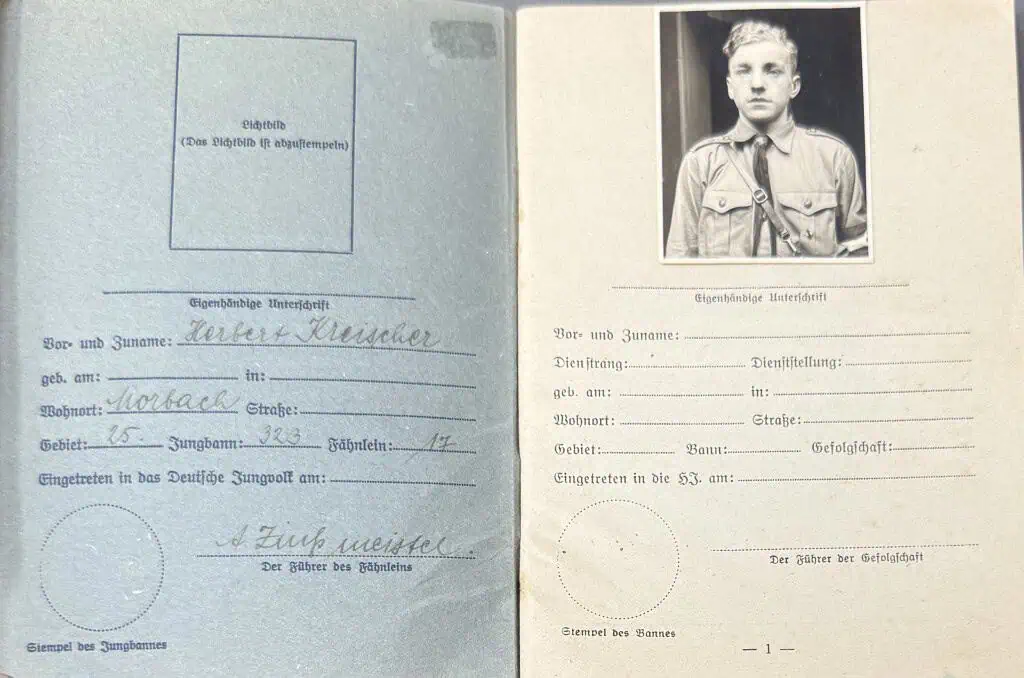 Lichtbild
(Das Lichtbild ist abzustempeln)
Eigenhändige Unterschrift
Vor- und Zuname: Herbert Kreischer
geb. am: in:
Wohnort: Morbach Straße:
Gebiet: 25. Jungbann: 323 Fähnlein: 17
Eingetreten in das Deutsche Jungvolk am:
A
Der Führer des Fähnleins
Stempel des Jungbannes
Eigenhändige Unterschrift
Vor- und Zuname:
Dienstrang: Dienststellung:
geb. am: in:
Wohnort: Straße:
Gebiet: Bann: Gefolgschaft:
Eingetreten in die HJ. am:
Der Führer der Gefolgschaft
Stempel des Bannes
— 1 —